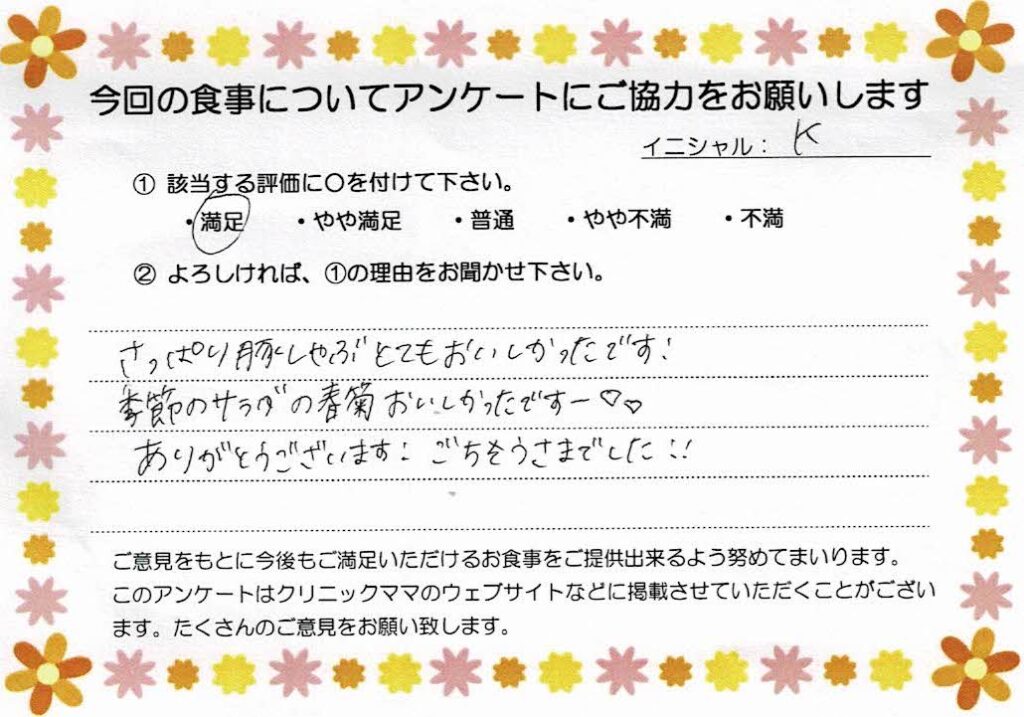 今回の食事についてアンケートにご協力をお願いします
イニシャル： K
① 該当する評価に〇を付けて下さい。
・満足 ・やや満足 ・普通 ・やや不満 ・不満
② よろしければ、①の理由をお聞かせ下さい。
さっぱり豚しゃぶとてもおいしかったです!
季節のサラダの春菊おいしかったですー♡♡
ありがとうございます! ごちそうさまでした!!
ご意見をもとに今後もご満足いただけるお食事をご提供出来るよう努めてまいります。
このアンケートはクリニックママのウェブサイトなどに掲載させていただくことがござい
ます。たくさんのご意見をお願い致します。